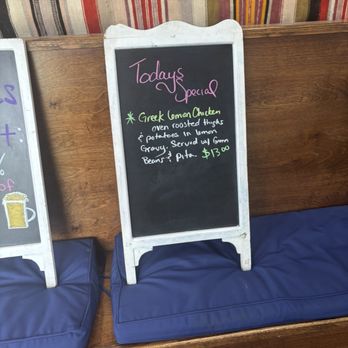 Todays
Special
* Greek Lemon Chicken
oven roasted thighs
& potatoes in lemon
Gravy. Served w/ Green
Beans & Pita. $13.00